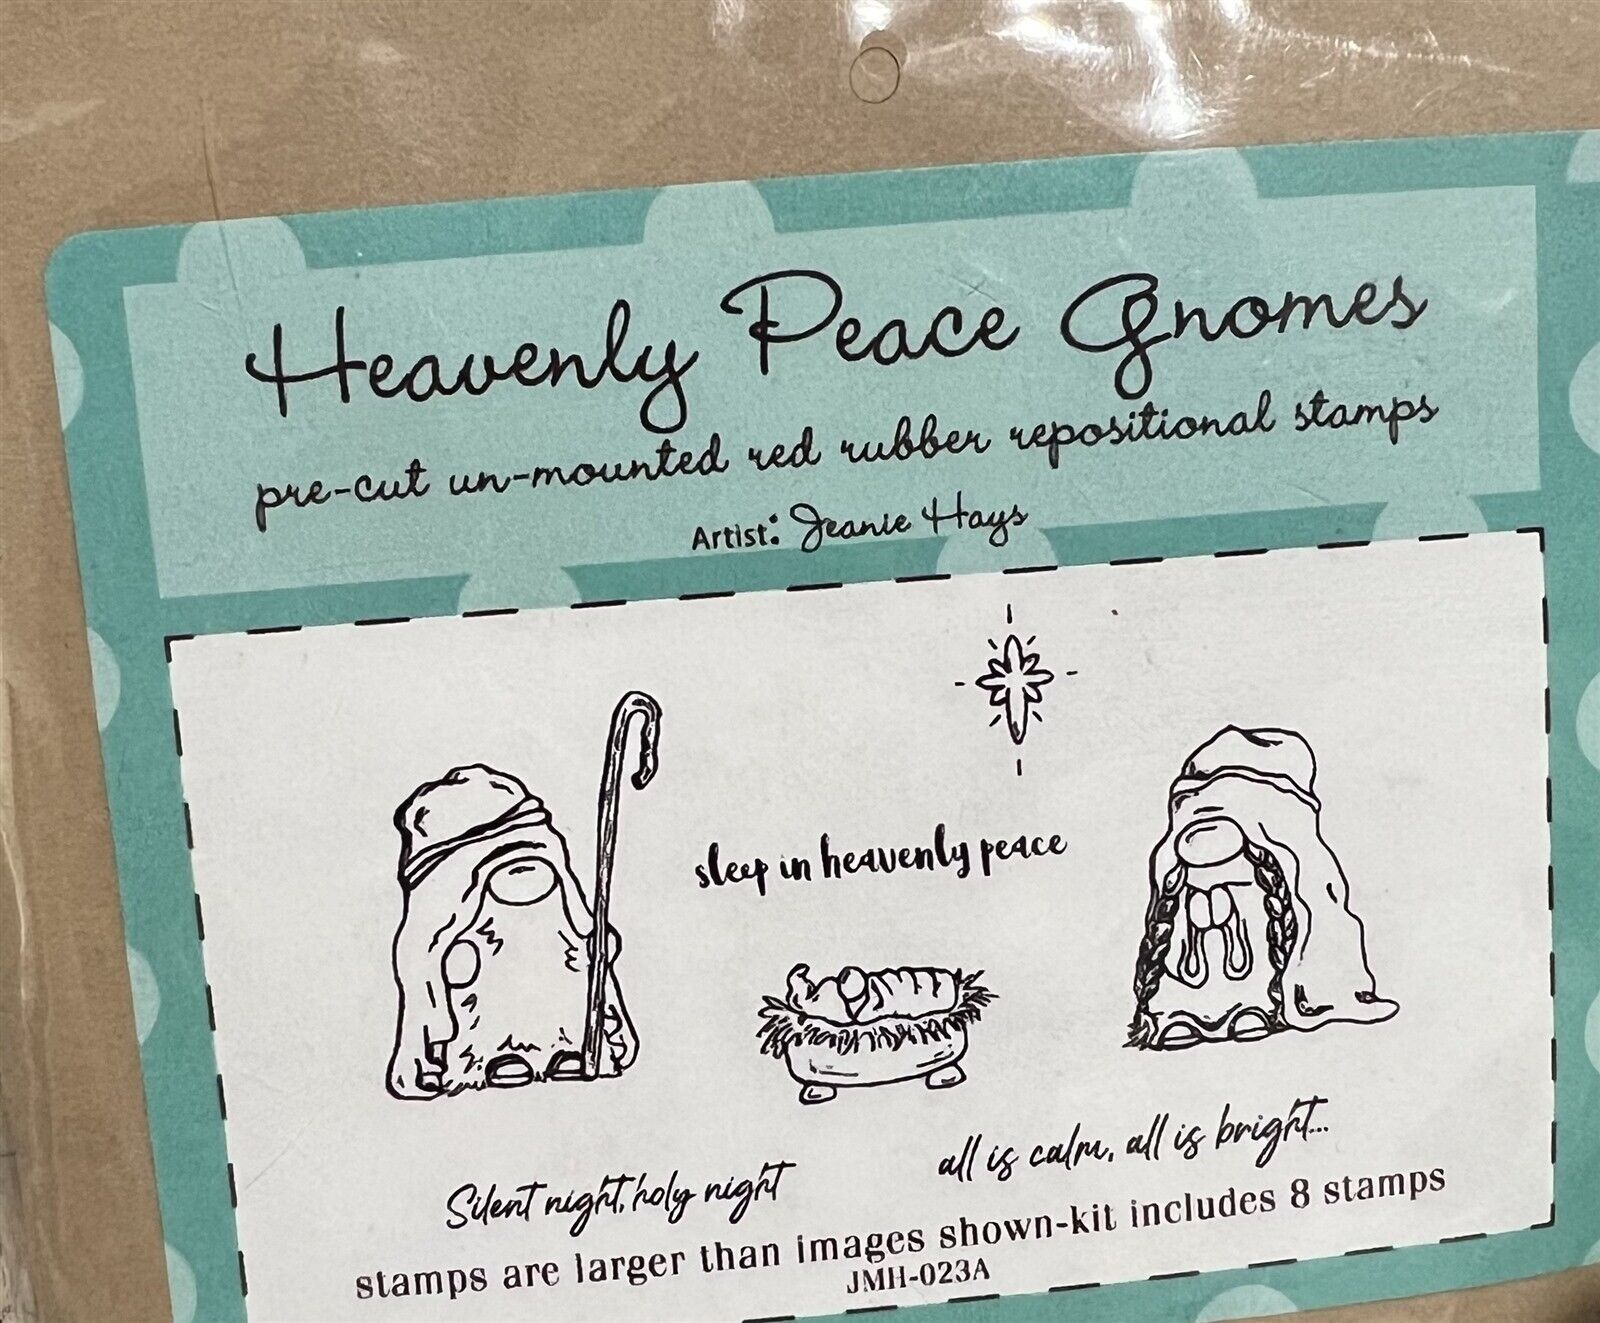 Heavenly Peace Gnomes
pre-cut un-mounted red rubber repositional stamps
Artist: Jeanie Hays
sleep in heavenly peace
all is calm, all is bright...
Silent night, holy night
stamps are larger than images shown-kit includes 8 stamps
JMH-023A